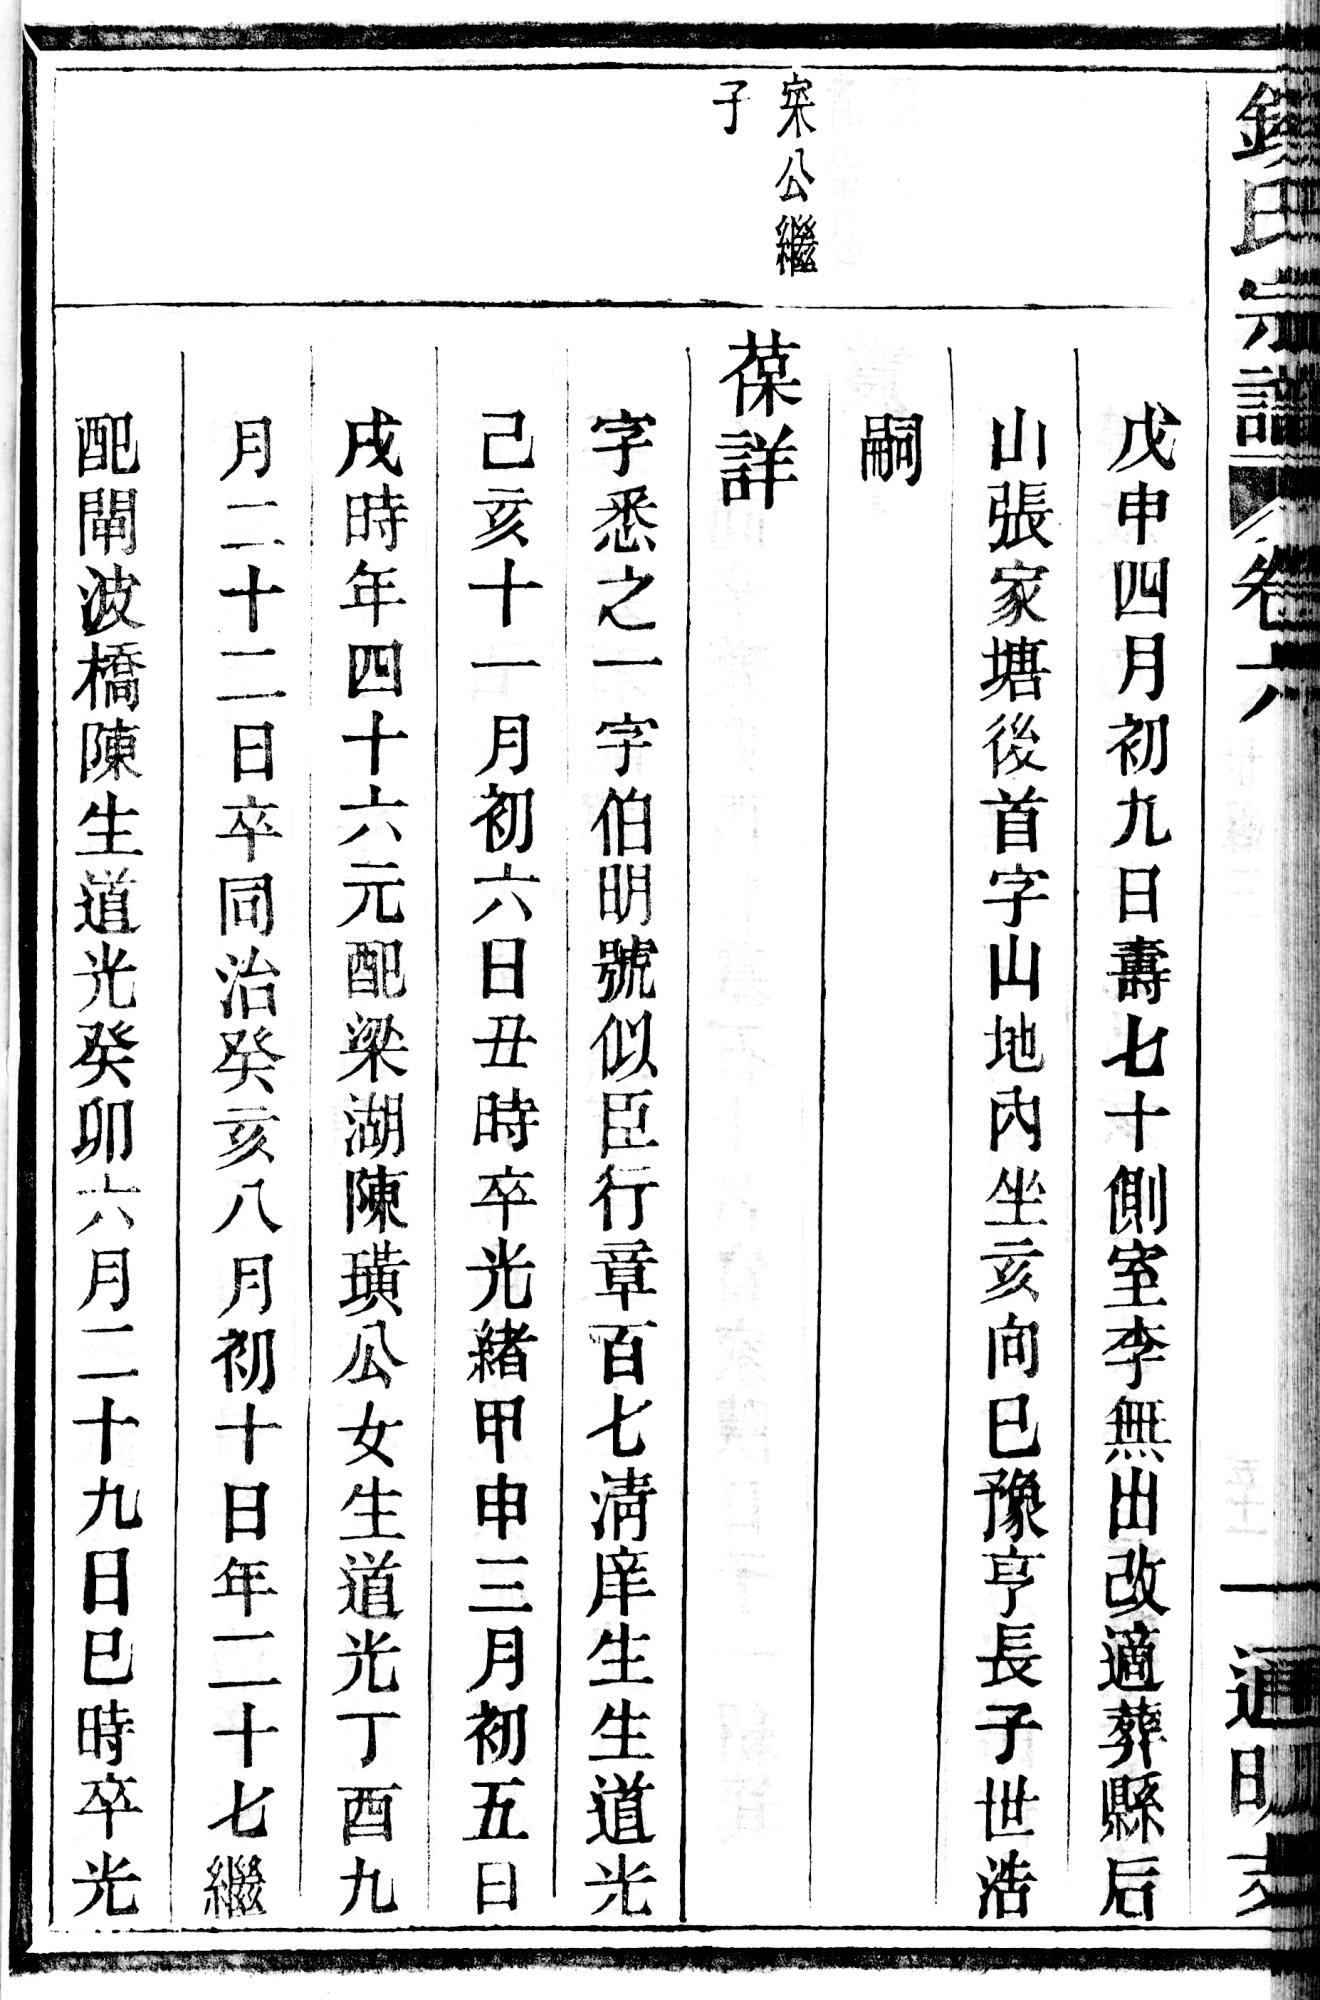 錢氏宗譜 卷六 通明支
戊申四月初九日壽七十側室李無出改適葬縣后
山張家塘後首字山地內坐亥向巳豫亨長子世浩
嗣
寀公繼
子
葆詳
字悉之一字伯明號似臣行章百七清庠生生道光
己亥十一月初六日丑時卒光緒甲申三月初五日
戌時年四十六元配梁湖陳璜公女生道光丁酉九
月二十二日卒同治癸亥八月初十日年二十七繼
配閘波橋陳生道光癸卯六月二十九日巳時卒光